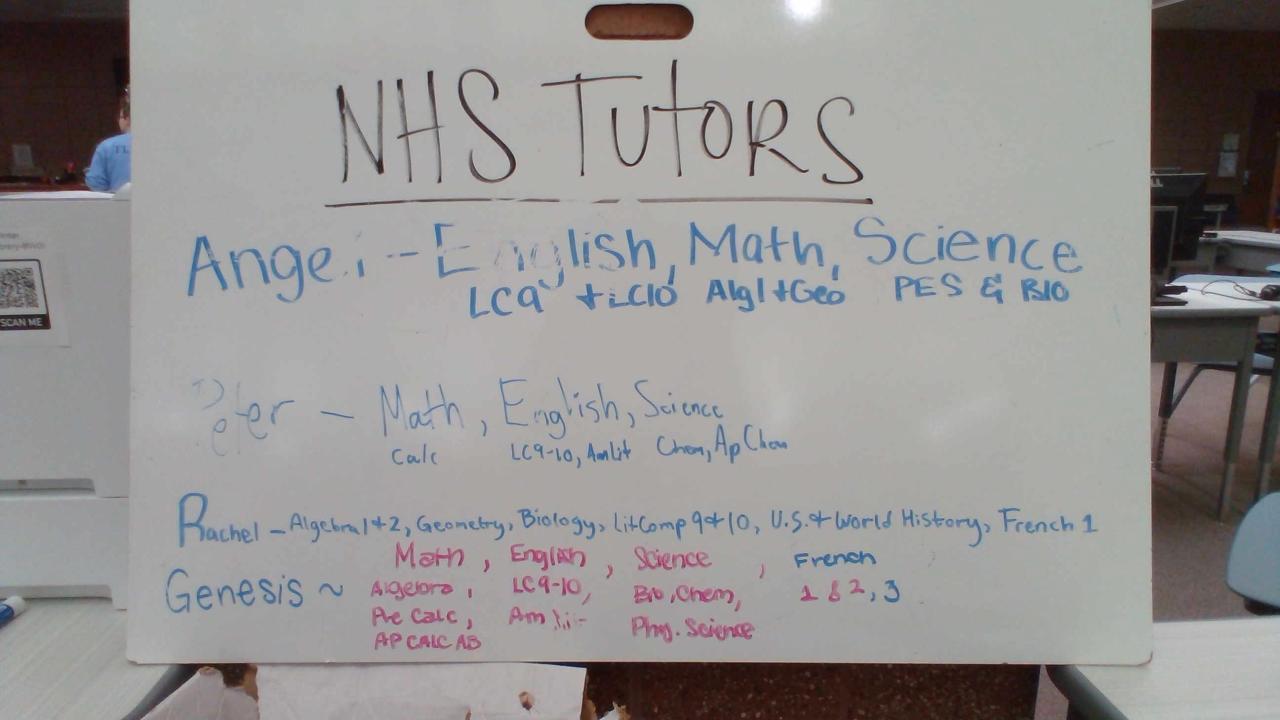 NHS TUTORS
Angel - English, Math, Science
LC9 + LC10 Alg1+Geo PES & BIO
Peter - Math, English, Science
Calc LC9-10, AmLit Chem, Ap Chem
Rachel - Algebra 1+2, Geometry, Biology, LitComp 9+10, U.S.+ World History, French 1
Math, English, Science, French
Genesis ~ Algebra, LC9-10, Bio, Chem, 1 & 2, 3
Pre Calc, Am Phy. Science
AP CALC AB
SCAN ME